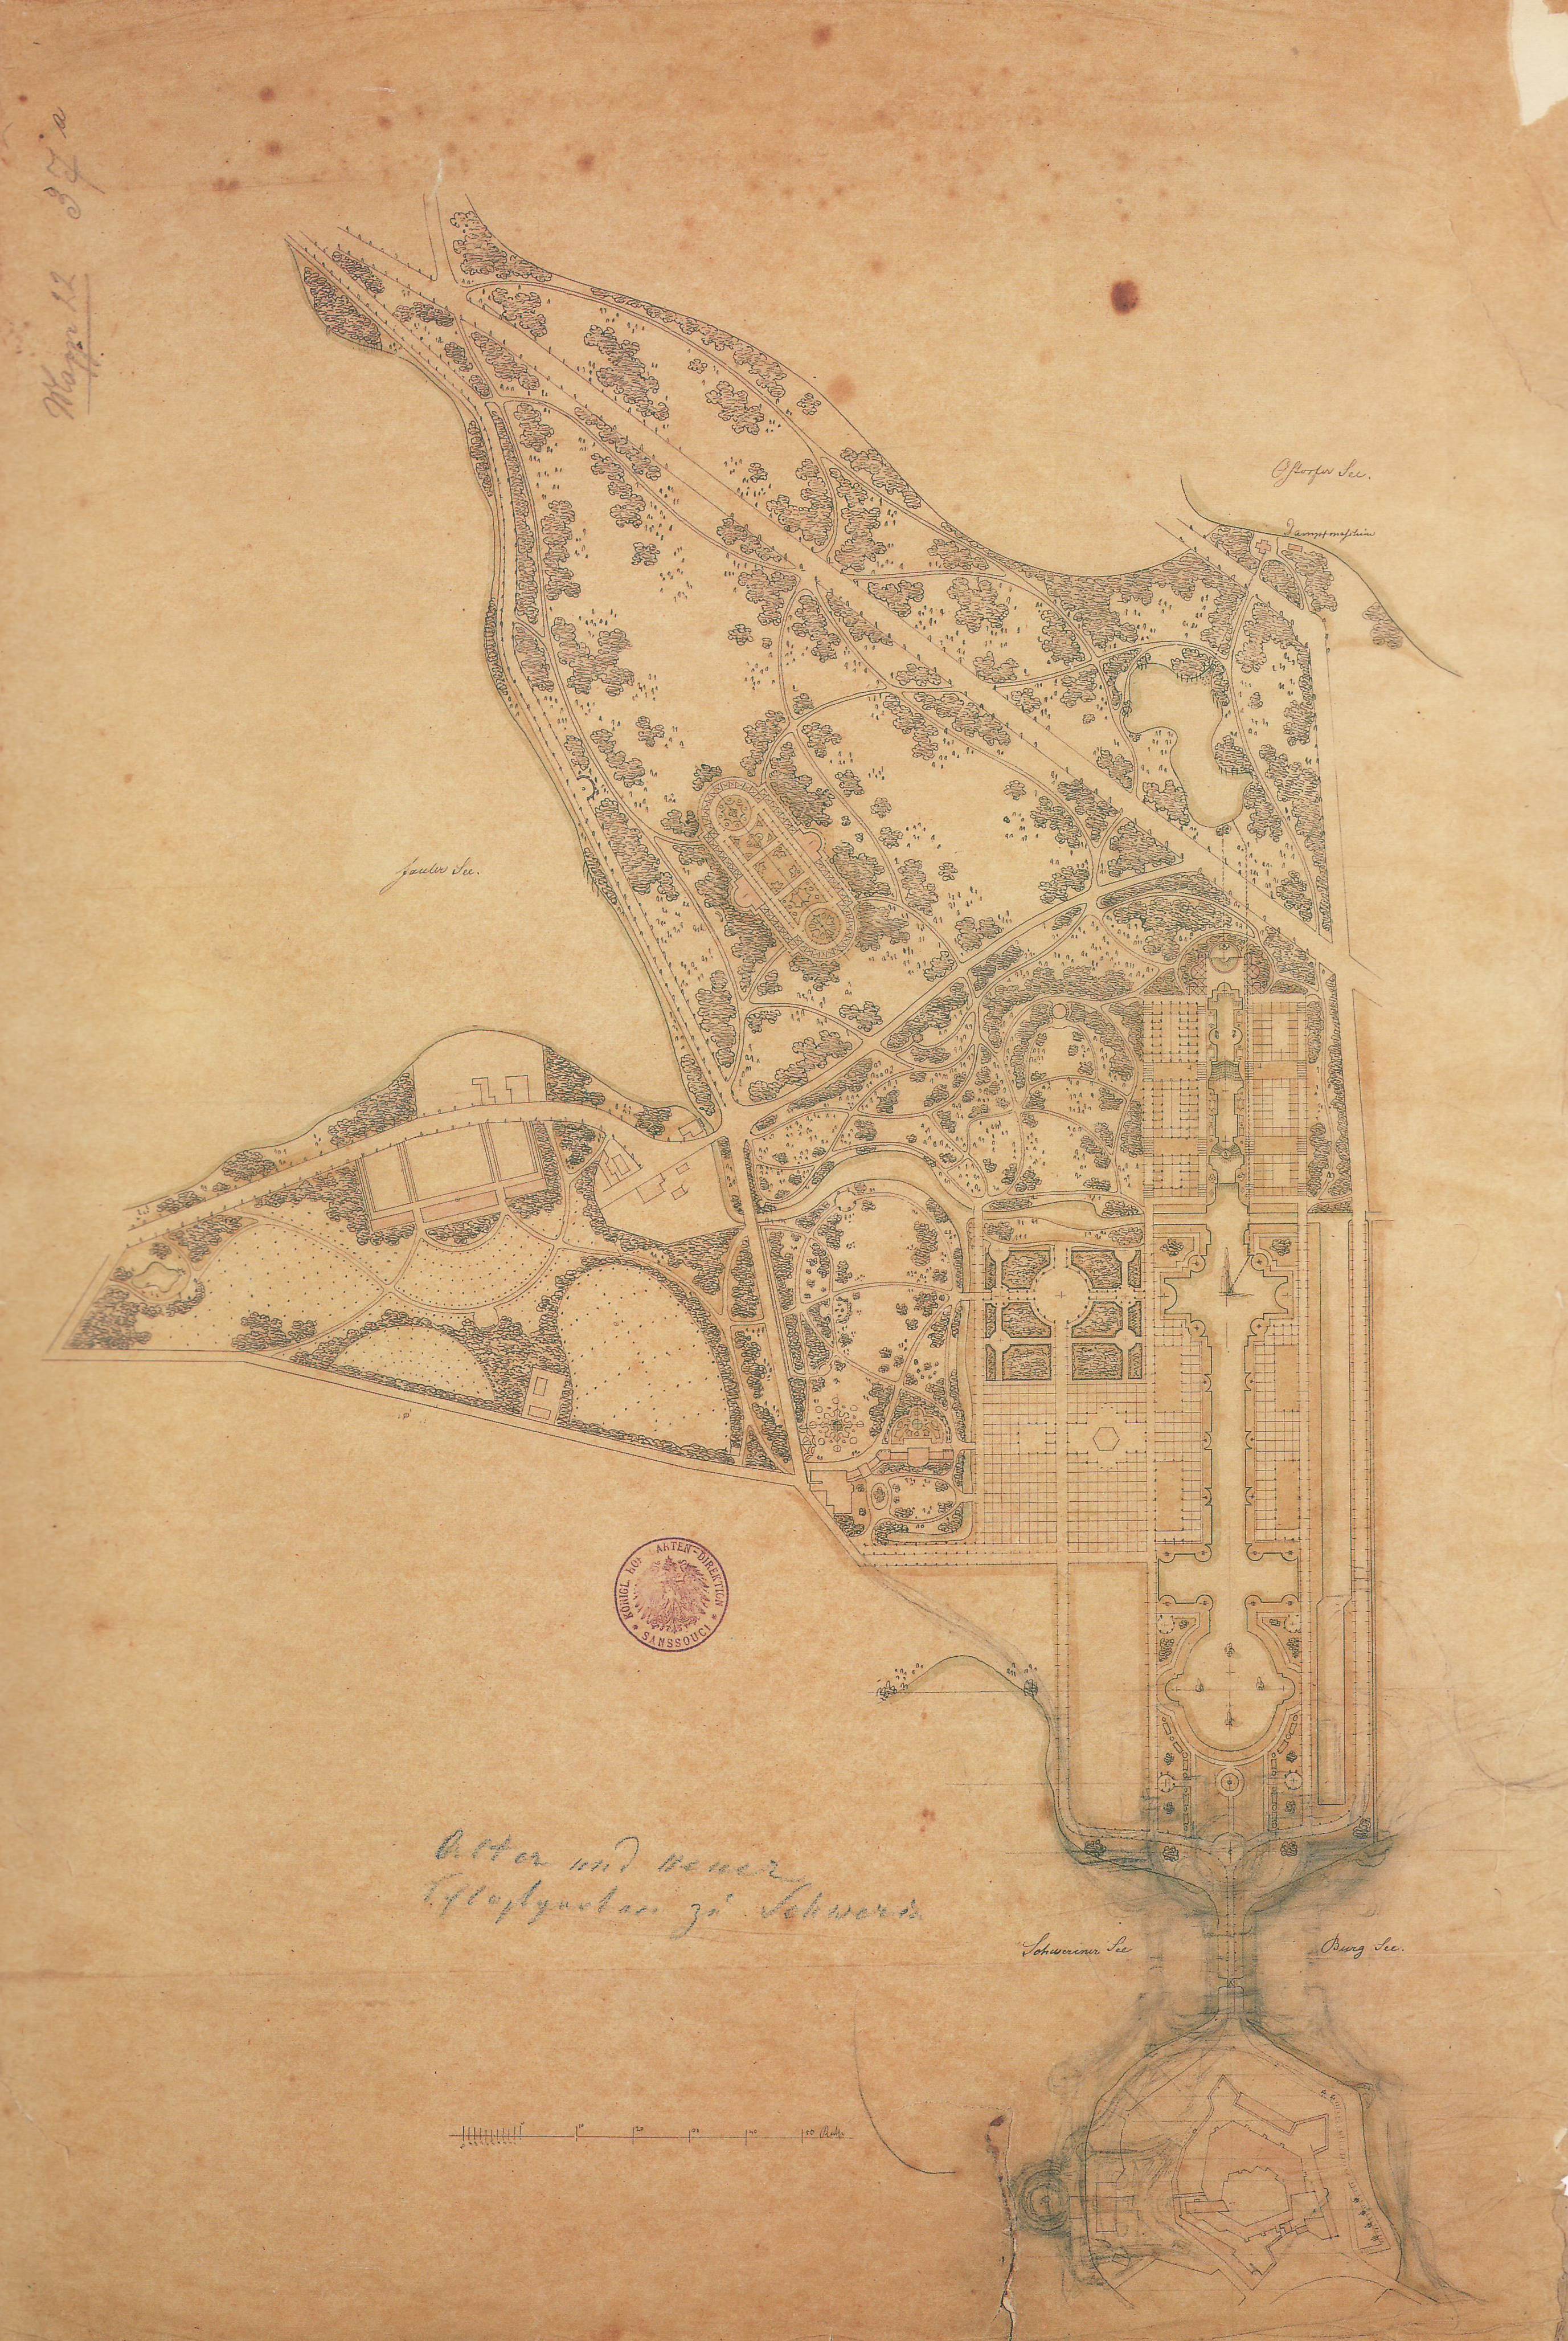 Mappe 22 37a
Ostorfer See.
Dampfmaschine
fauler See.
KÖNIGL. HOFGARTEN-DIREKTION
* SANSSOUCI *
Alter und neuer
Schloßgarten zu Schwerin
Schweriner See
Burg See.
10 20 30 40 50 Ruth.